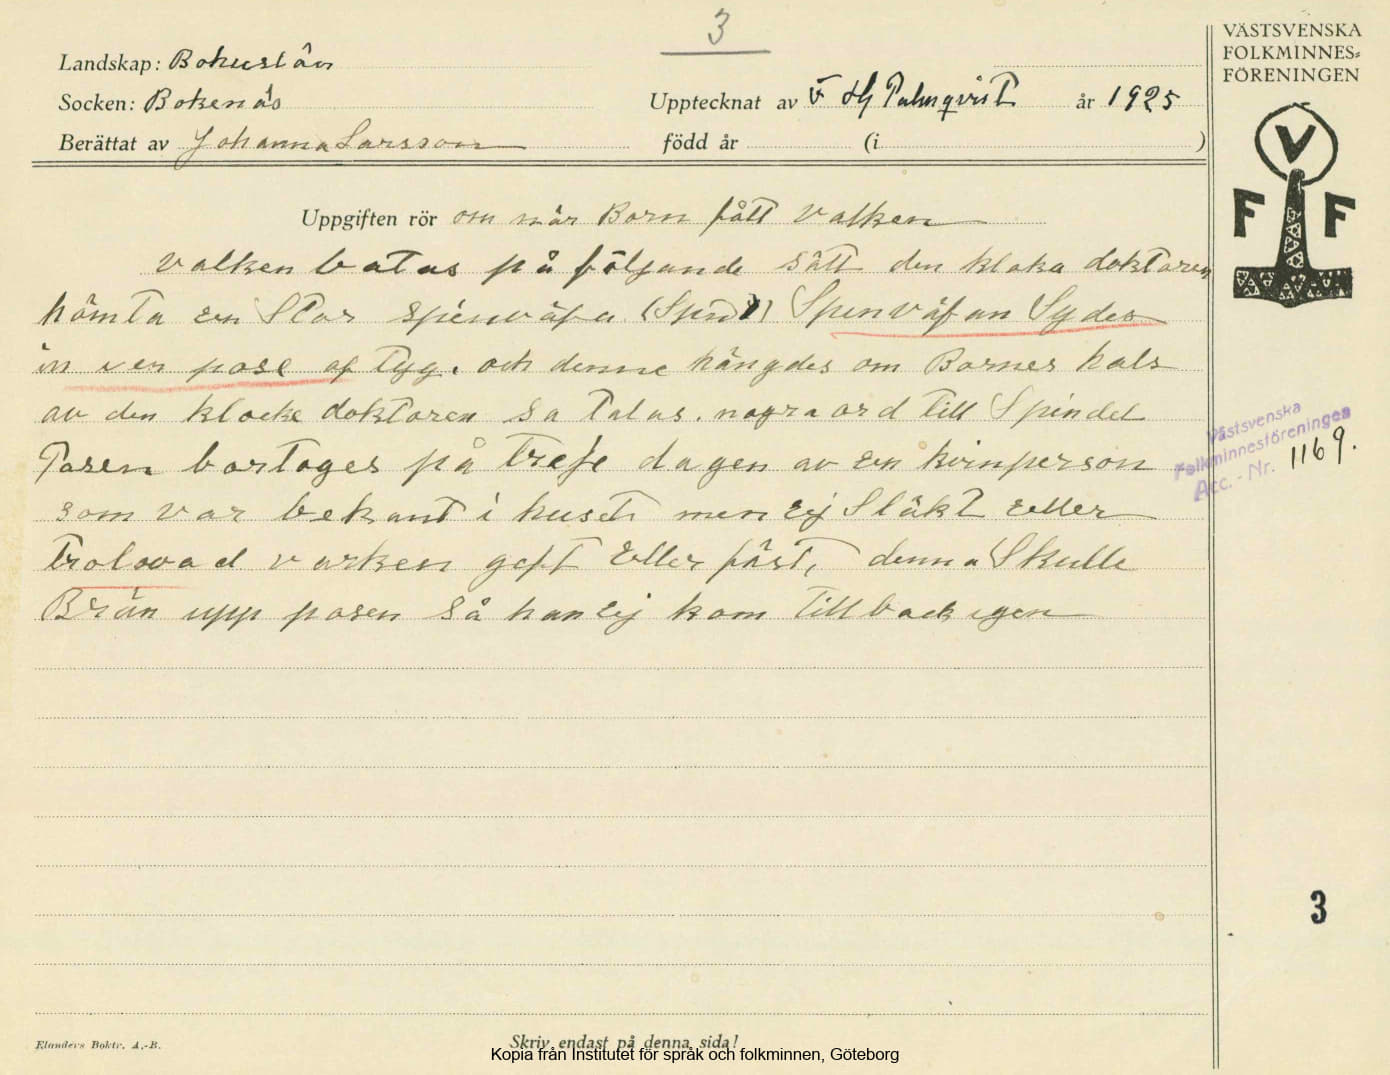 3
VÄSTSVENSKA
FOLKMINNES=
FÖRENINGEN
Landskap: Bohuslän
Socken: Bokenäs
Upptecknat av F Hj Palmqvist år 1925
Berättat av Johanna Larsson född år (i )
V
F F
Uppgiften rör om när Barn fått valken
valken botas på följande sätt den kloka doktoren
hämta en Stor spenväfa (Spind) Spenväfan Sydes
in i en pose af tyg. och denne hängdes om Barnes hals
av den kloke doktoren sa talas. nogra ord till Spindel
Posen bortoges på treje dagen av en kvinperson
som var bekant i huset men ej Släkt eller
trolovad varken geft eller fäst, denna Skulle
Brän upp posen så han ej kom tillback igen
Västsvenska
Folkminnesföreningen
Acc.-Nr. 1169.
3
Elanders Boktr. A.-B.
Skriv endast på denna sida!
Kopia från Institutet för språk och folkminnen, Göteborg